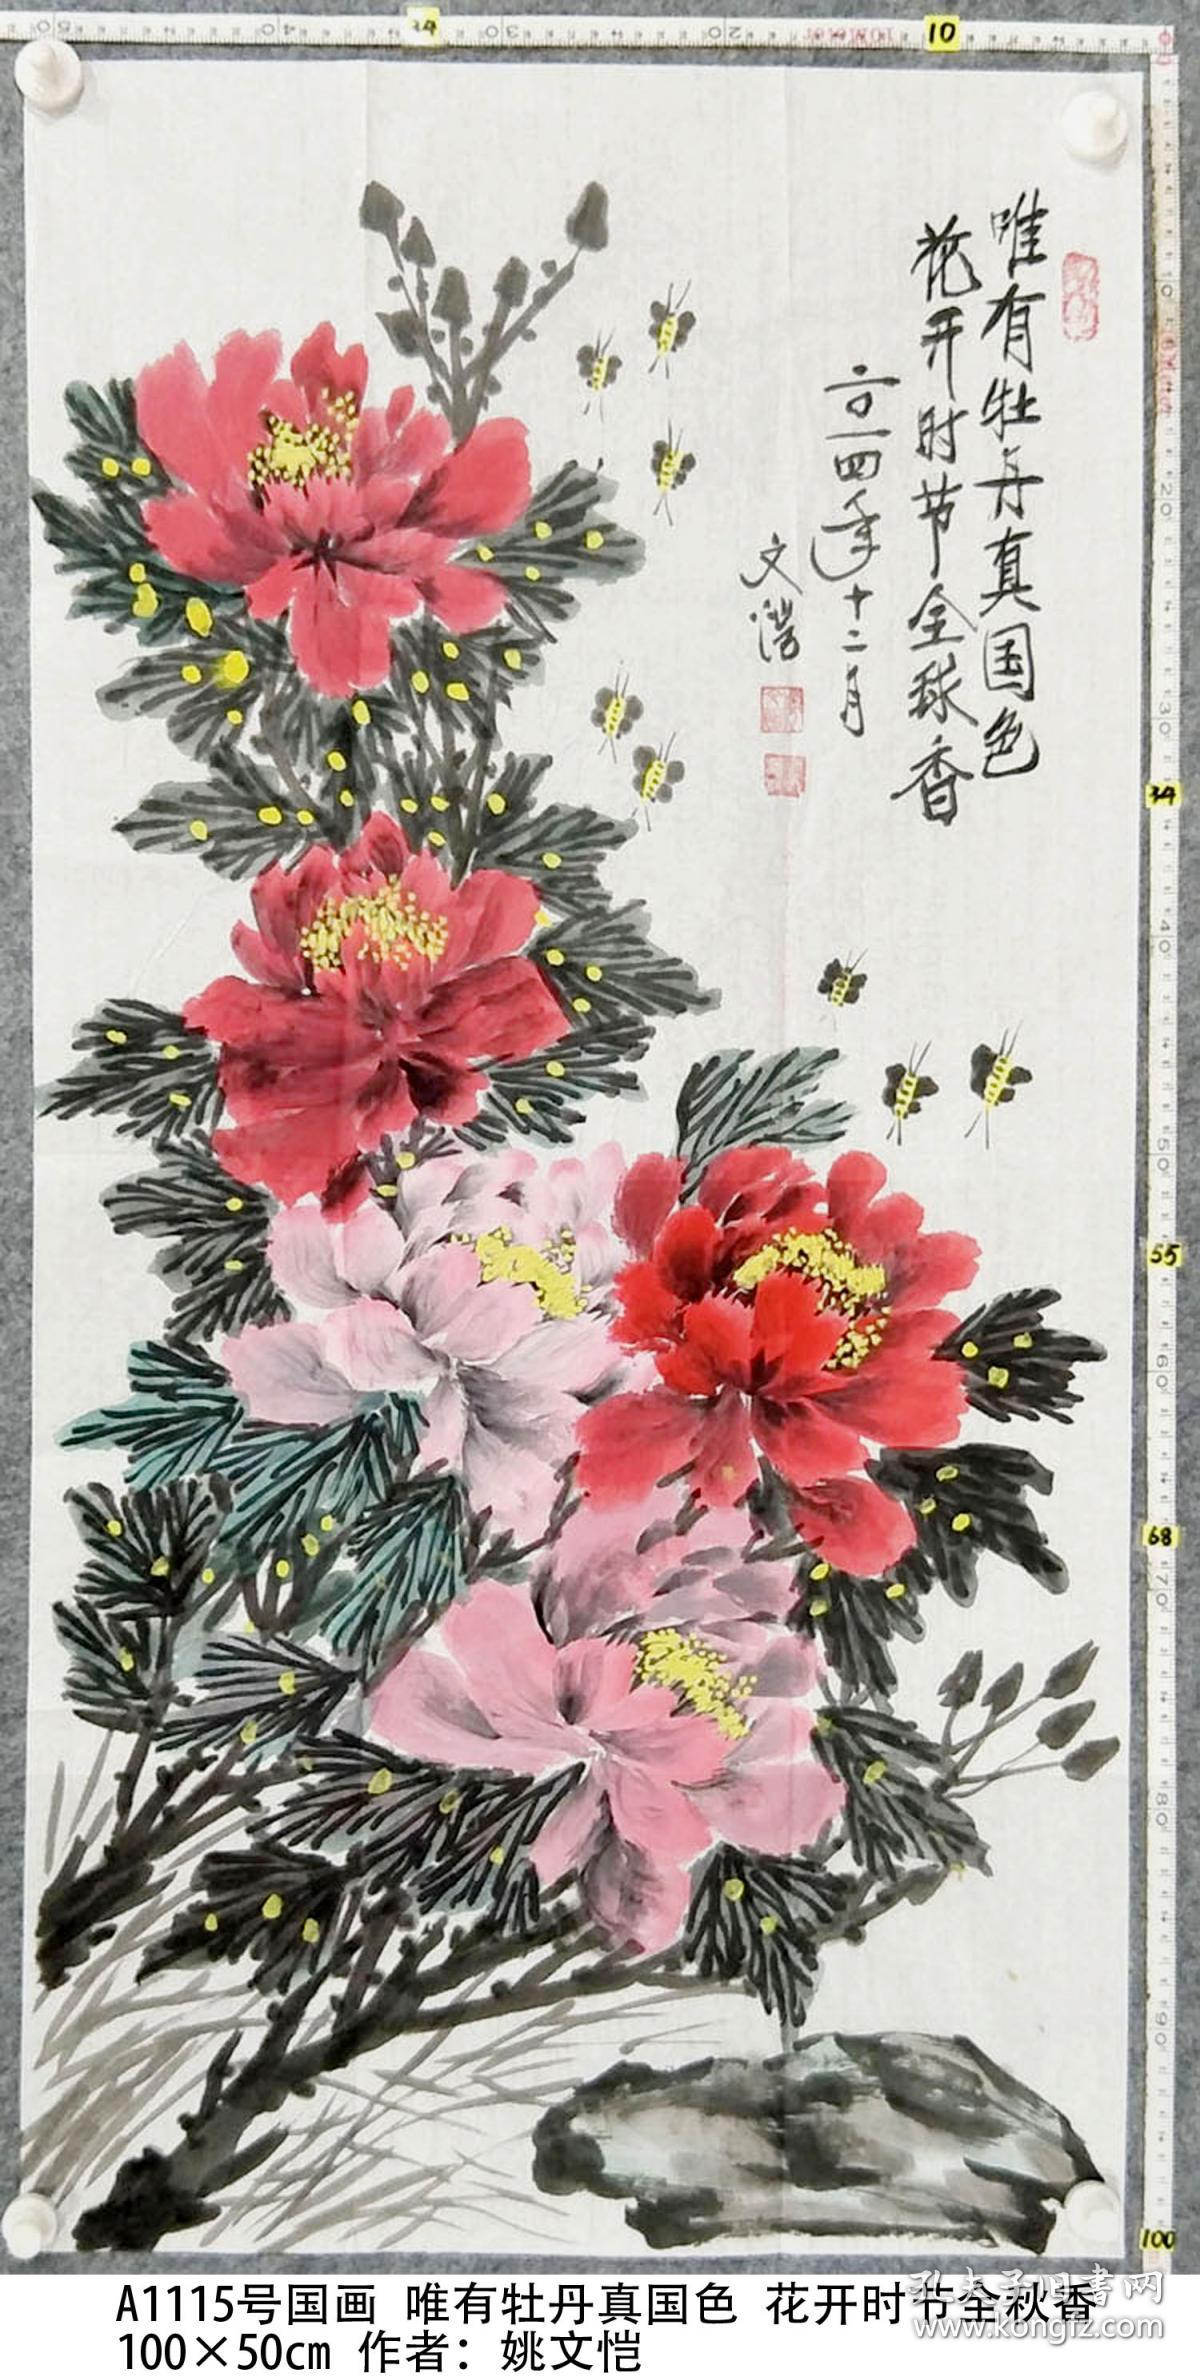 唯有牡丹真国色
花开时节全球香
二〇一四年十二月
10
34
34
55
68
100
A1115号国画 唯有牡丹真国色 花开时节全秋香
100×50cm 作者：姚文恺
孔夫子旧书网
www.kongfz.com